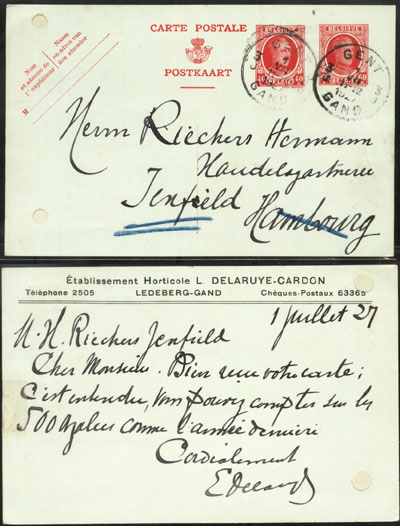 CARTE POSTALE
POSTKAART
Nom et adresse de l'expéditeur
Naam en adres van den afzender
M
BELGIQUE
BELGIË
40
40
GENT
GAND
GENT
GAND
Herrn Riechers Hermann
Handelsgärtnerei
Jenfield Hambourg
Établissement Horticole L. DELARUYE-CARDON
Téléphone 2505 LEDEBERG-GAND Chèques-Postaux 63365
1 juillet 27
M. H. Riechers Jenfield
Cher Monsieur. Bien reçu votre carte;
C'est entendu, vous pouvez compter sur les
500 azalees comme l'année dernière
Cordialement